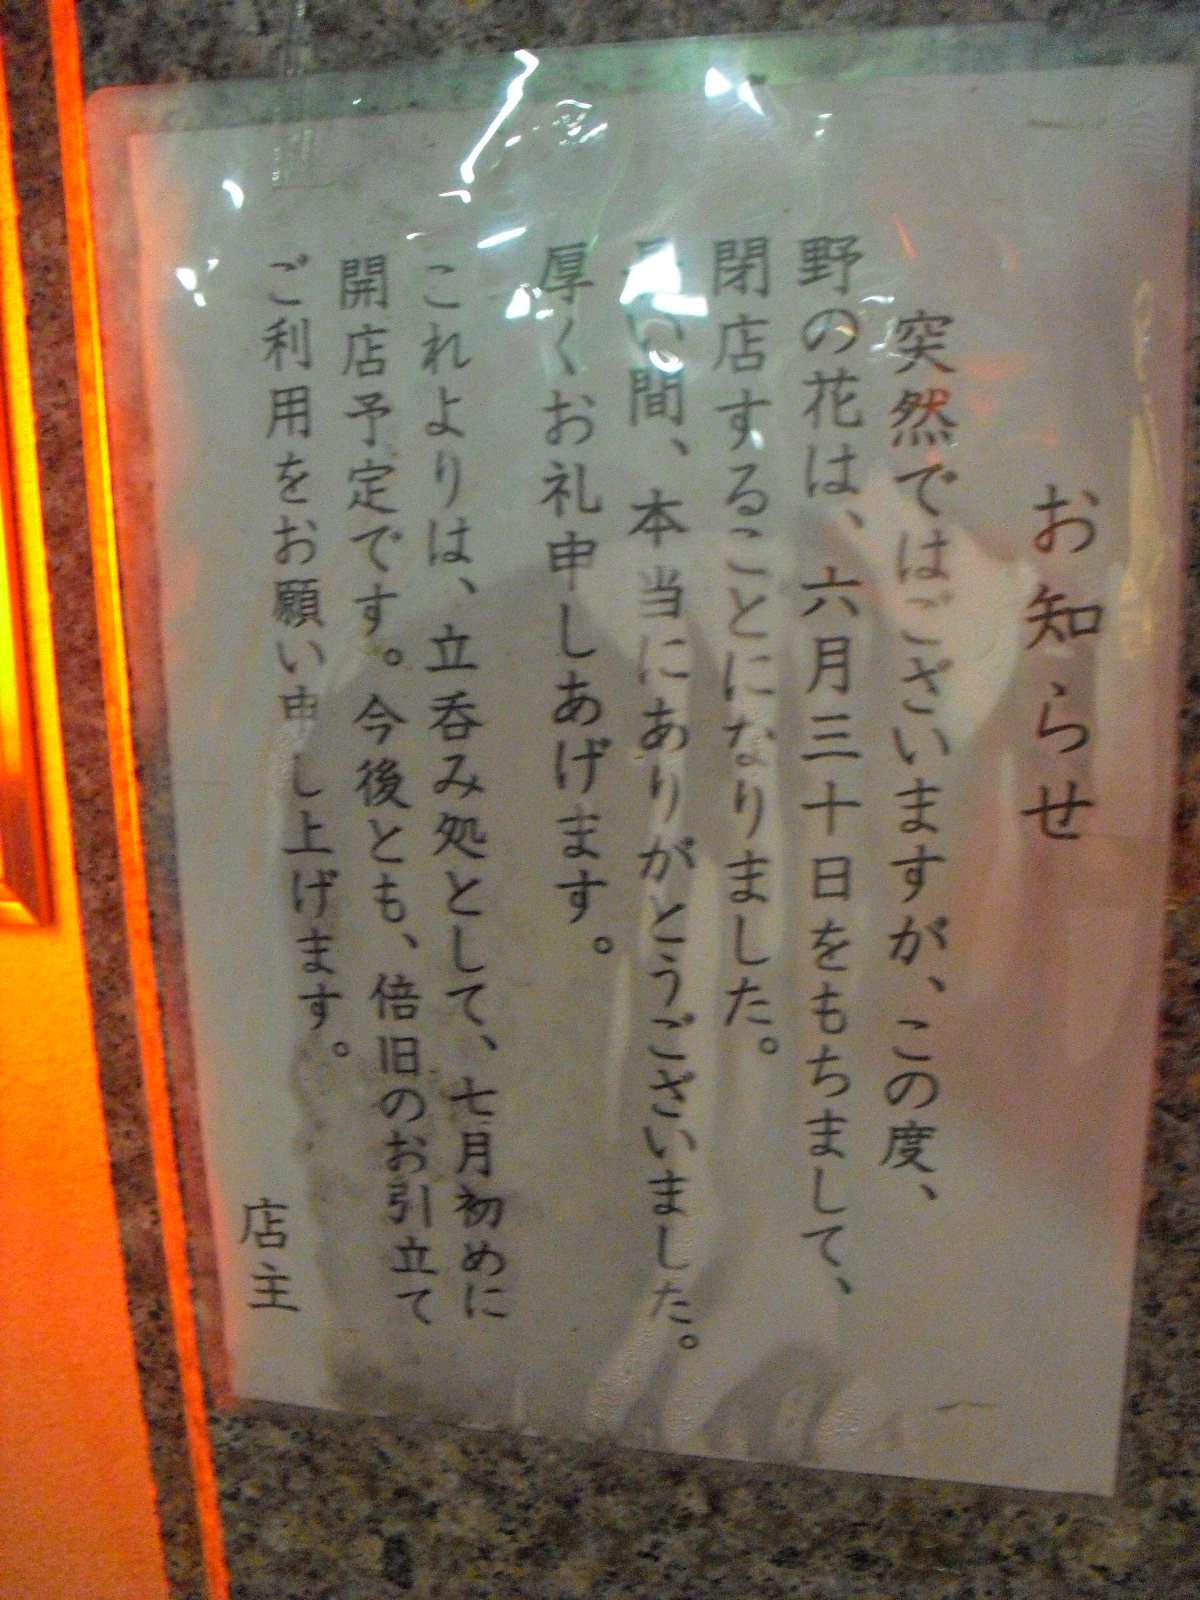 お知らせ
突然ではございますが、この度、
野の花は、六月三十日をもちまして、
閉店することになりました。
長い間、本当にありがとうございました。
厚くお礼申しあげます。
これよりは、立呑み処として、七月初めに
開店予定です。今後とも、倍旧のお引立て
ご利用をお願い申し上げます。
店主